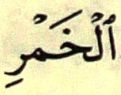 ٱلْخَمْرِ